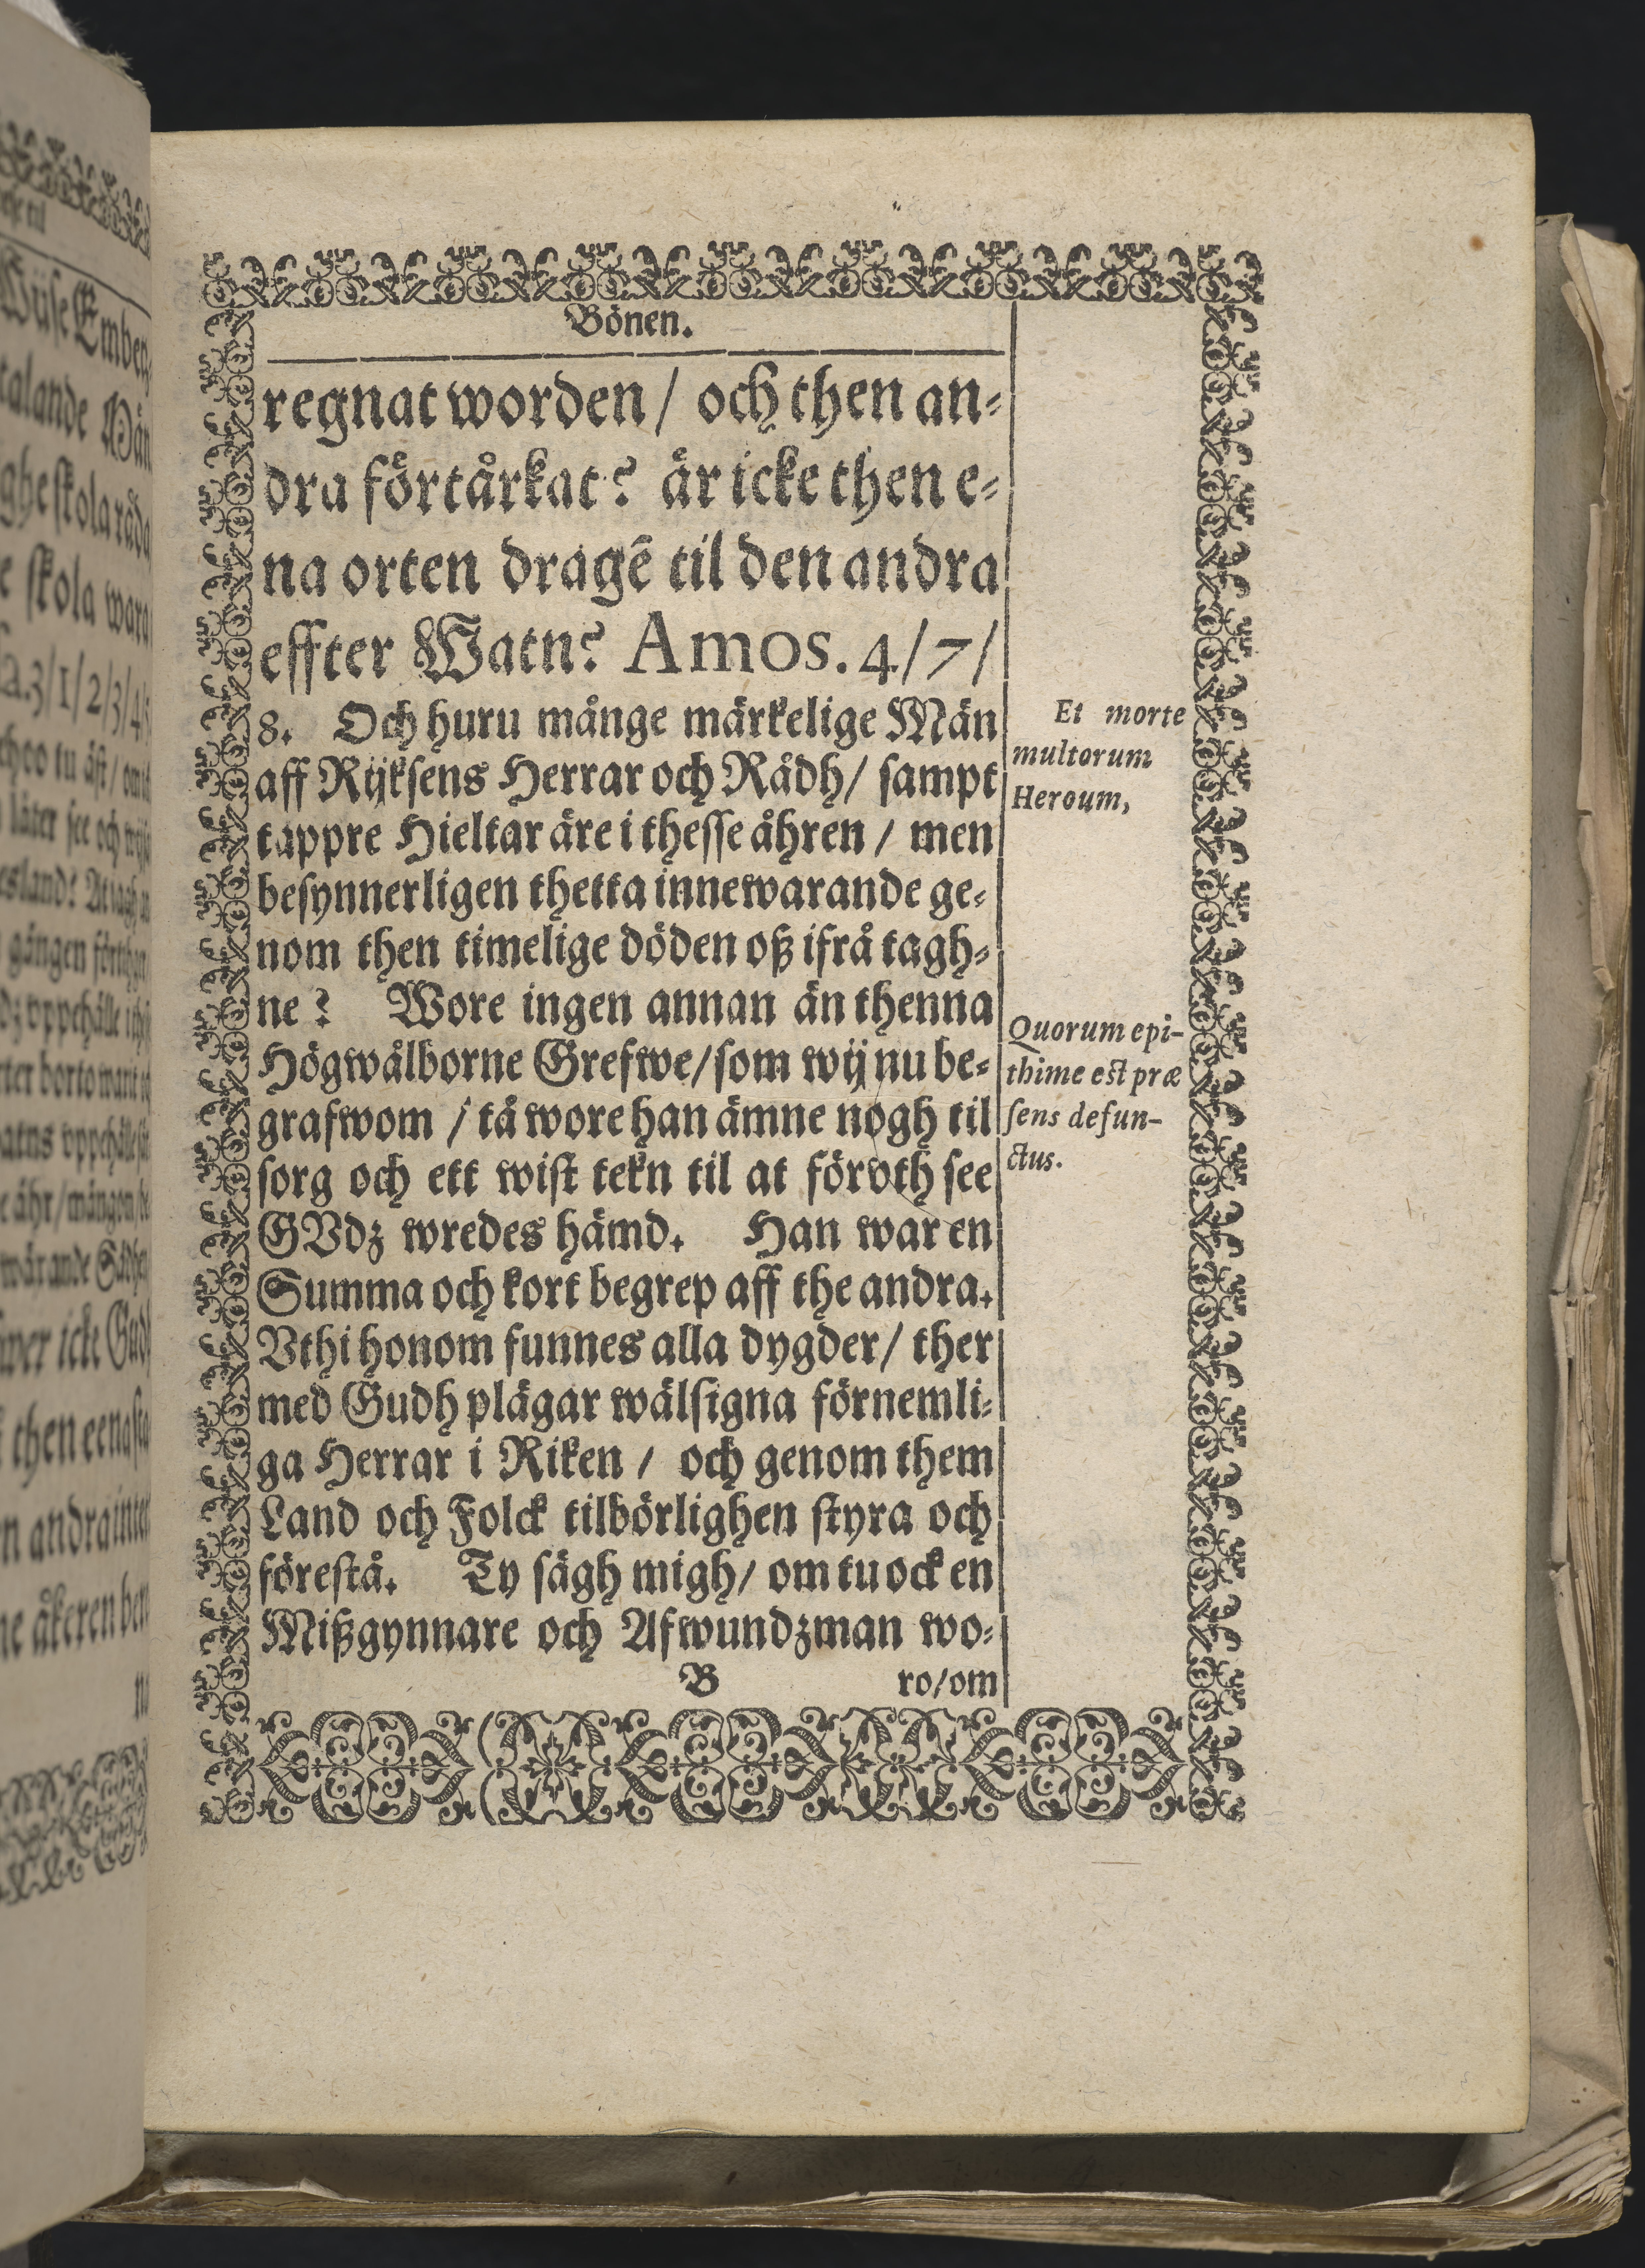 Bönen.
regnat worden / och then an-
dra förtårkat? är icke then e-
na orten dragē til den andra
effter Watn? Amos. 4/7/
8. Och huru månge märkelige Män
aff Rijksens Herrar och Rådh / sampt
tappre Hieltar äre i thesse åhren / men
besynnerligen thetta innewarande ge-
nom then timelige döden oß ifrå tagh-
ne? Wore ingen annan än thenna
Högwålborne Grefwe / som wij nu be-
grafwom / tå wore han ämne nogh til
sorg och ett wist tekn til at förvth see
GVdz wredes hämd. Han war en
Summa och kort begrep aff the andra.
Vthi honom funnes alla dygder / ther
med Gudh plägar wälsigna förnemli-
ga Herrar i Riken / och genom them
Land och Folck tilbörlighen styra och
förestå. Ty sägh migh / om tu ock en
Mißgynnare och Afwundzman wo-
B ro/om
Et morte
multorum
Heroum,
Quorum epi-
thime est præ
sens defun-
ctus.